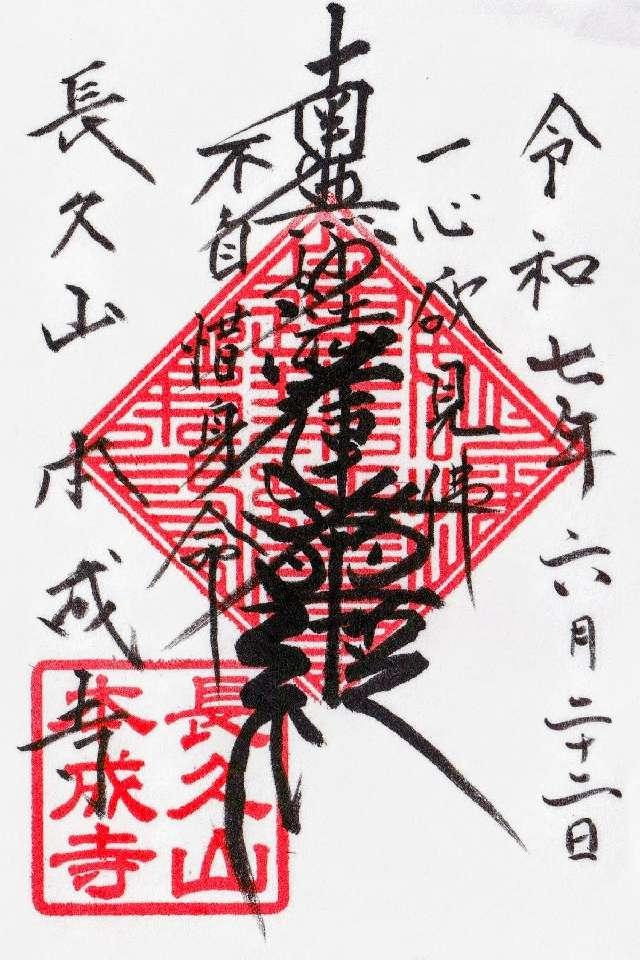 令和七年六月二十二日
一心欲見佛
南無妙法蓮華経
不自惜身命
長久山 本成寺
長久山
本成寺